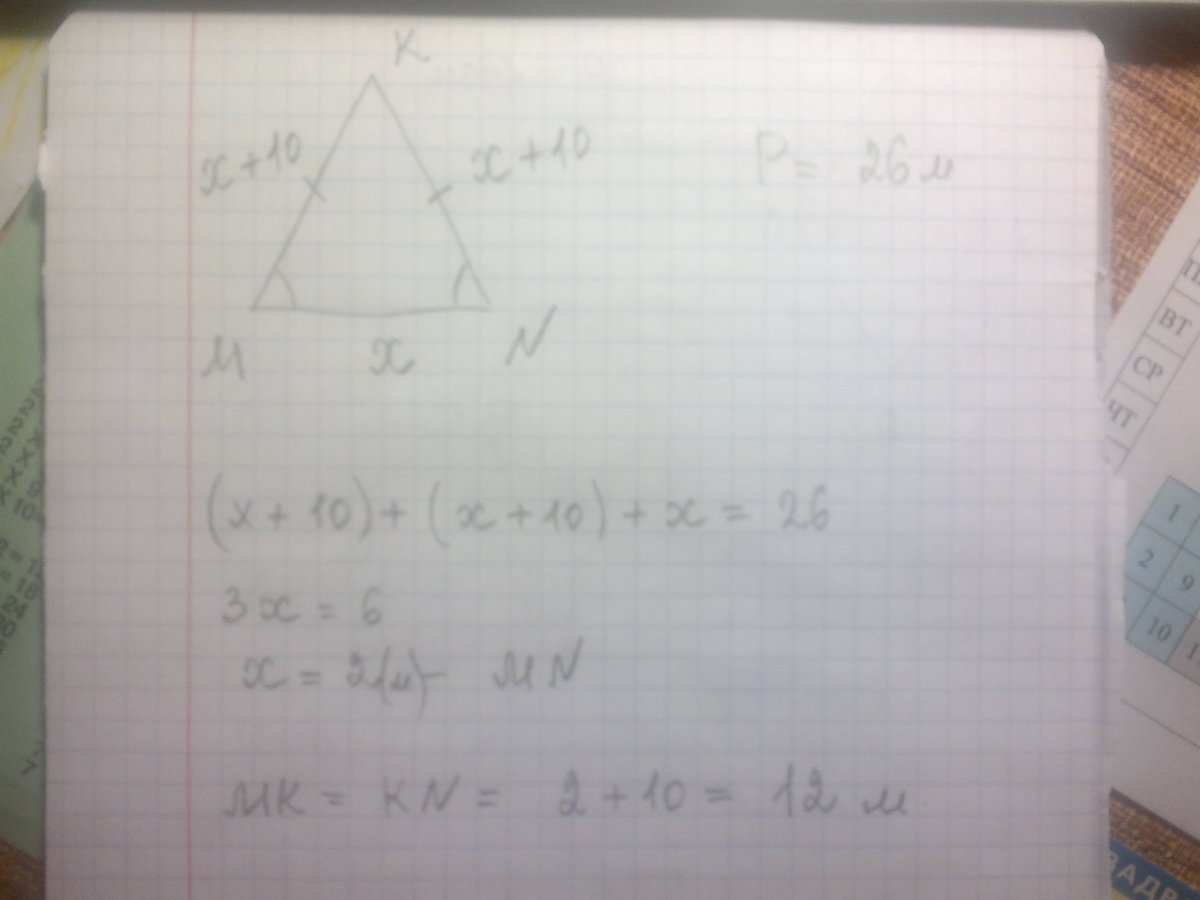 K
x+10
x+10
P = 26 м
M
x
N
(x + 10) + (x + 10) + x = 26
3x = 6
x = 2(м) - MN
MK = KN = 2 + 10 = 12 м
ВТ
СР
ЧТ
1
2
9
10